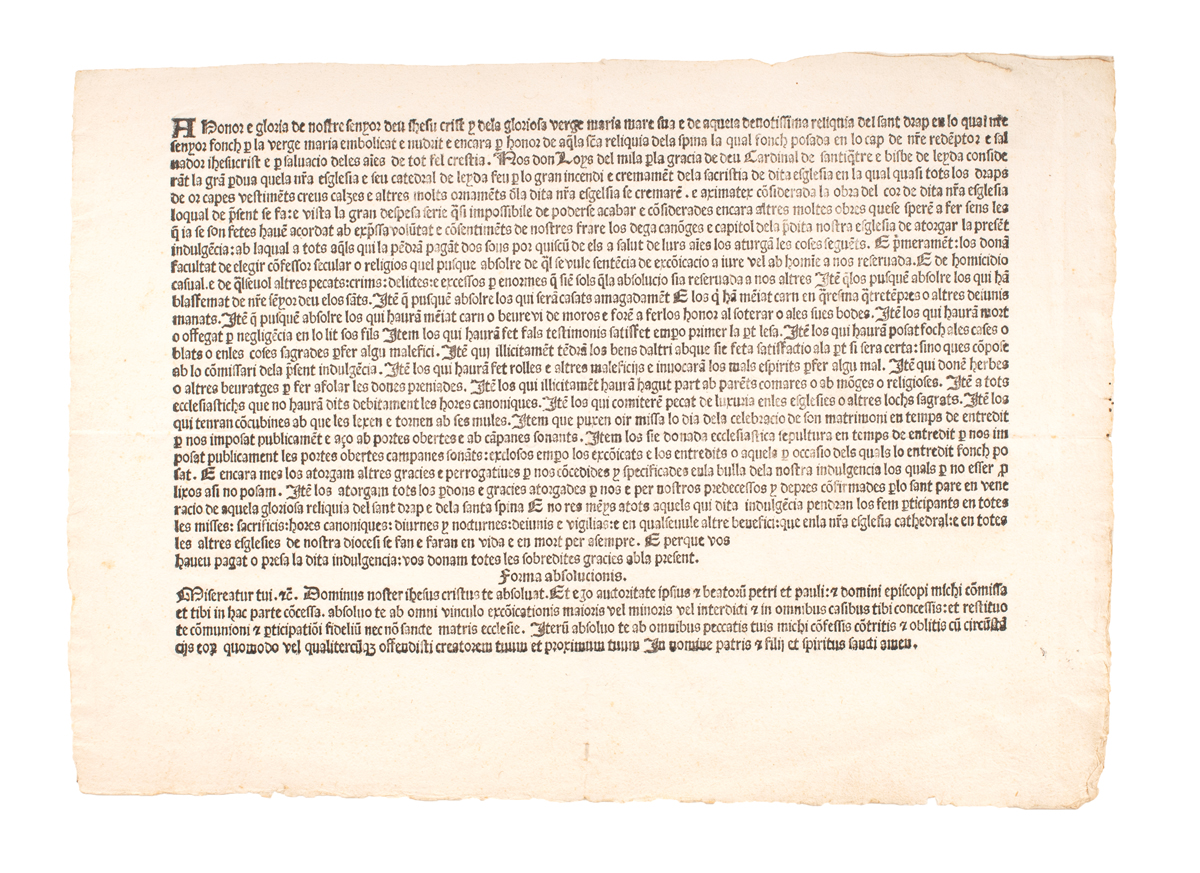 A Honor e gloria de nostre senyor deu ihesu crist y dela gloriosa verge maria mare sua e de aquela deuotissima reliquia del sant drap en lo qual nr̄e
senyor fonch ꝑ la verge maria embolicat e nudrit e encara ꝑ honor de aq̄la sēa reliquia dela spina la qual fonch posada en lo cap de nr̄e redēptor e sal
uador ihesucrist e ꝑ saluacio deles aīes de tot fel crestia. Nos don Loys del mila ꝑla gracia de deu Cardinal de santiq̄tre e bisbe de leyda conside
rāt la grā ꝑdua quela nr̄a esglesia e seu catedral de leyda feu ꝑ lo gran incendi e cremamēt dela sacristia de dita esglesia en la qual quasi tots los draps
de or capes vestimēts creus calzes e altres molts ornamēts d̄la dita nr̄a esgelsia se cremarē. e aximatex cōsiderada la obra del cor de dita nr̄a esglesia
loqual de p̄sent se fa: e vista la gran despesa serie q̄si impossibile de poderse acabar e cōsiderades encara altres moltes obres quese sperē a fer sens les
q̄ ia se son fetes hauē acordat ab exp̄ssa volūtat e cōsentimēts de nostres frare los dega canōges e capitol dela p̄dita nostra esglesia de atorgar la presēt
indulgēcia: ab laqual a tots aq̄ls qui la pēdrā pagāt dos sous por quiscū de els a salut de lurs aīes los aturgā les coses seguēts. E p̄meramēt: los donā
facultat de elegir cōfessor secular o religios quel pusque absolre de q̄l se vule sentēcia de excōicacio a iure vel ab homīe a nos reseruada. E de homicidio
casual. e de q̄lseuol altres pecats: crims: delictes: e excessos ꝑ enormes q̄ siē sols q̄la absolucio sia reseruada a nos altres Itē q̄los pusquē absolre los qui hā
blasfemat de nr̄e sēyor deu elos sāts. Itē q̄ pusquē absolre los qui serā casats amagadamēt E los q̄ hā mēiat carn en q̄resma q̄tretēpres o altres deiunis
manats. Itē q̄ pusquē absolre los qui haurā mēiat carn o beure vi de moros e forē a ferlos honor al soterar o ales sues bodes. Itē los qui haurā mort
o offegat ꝑ negligēcia en lo lit sos fils Item los qui haurā fet fals testimonis satisfet empo primer la ꝑt lesa. Itē los qui haurā posat foch ales cases o
blats o enles coses sagrades ꝑfer algu malefici. Itē qui illicitamēt tēdrā los bens daltri abque sie feta satisfactio ala ꝑt si sera certa: sino ques cōpose
ab lo cōmissari dela p̄sent indulgēcia. Itē los qui haurā fet rolles e altres maleficijs e inuocarā los mals espirits ꝑfer algu mal. Itē qui donē herbes
o altres beuratges ꝑ fer afolar les dones preniades. Itē los qui illicitamēt haurā hagut part ab parēts comares o ab mōges o religioses. Itē a tots
ecclesiastichs que no haurā dits debitament les hores canoniques. Itē los qui comiterē pecat de luxuria enles esglesies o altres lochs sagrats. Itē los
qui tenran cōcubines ab que les lexen e tornen ab ses mules. Item que puxen oir missa lo dia dela celebracio de son matrimoni en temps de entredit
ꝑ nos imposat publicamēt e aço ab portes obertes e ab cāpanes sonants. Item los sie donada ecclesiastica sepultura en temps de entredit ꝑ nos im
posat publicament les portes obertes campanes sonāts: exclosos empo los excōicats e los entredits o aquels ꝑ occasio dels quals lo entredit fonch po
sat. E encara mes los atorgam altres gracies e perrogatiues ꝑ nos cōcedides y specificades enla bulla dela nostra indulgencia los quals ꝑ no esser ꝓ
lixos asi no posam. Itē los atorgam tots los ꝑdons e gracies atorgades ꝑ nos e per nostros predecessos y depres cōfirmades ꝑlo sant pare en vene
racio de aquela gloriosa reliquia del sant drap e dela santa spina E no res mēys atots aquels qui dita indulgēcia pendran los fem ꝑticipants en totes
les misses: sacrificis: hores canoniques: diurnes y nocturnes: deiunis e vigilias: e en qualseuule altre benefici: que enla nr̄a esglesia cathedral: e en totes
les altres esglesies de nostra diocesi se fan e faran en vida e en mort per asempre. E perque vos
haueu pagat o presa la dita indulgencia: vos donam totes les sobredites gracies abla present.
Forma absolucionis.
Misereatur tui. ⁊c̄. Dominus noster ihesus cristus te absoluat. Et ego auctoritate ipsius ⁊ beatorū petri et pauli: ⁊ domini episcopi michi cōmissa
et tibi in hac parte cōcessa. absoluo te ab omni vinculo excōicationis maioris vel minoris vel interdicti ⁊ in omnibus casibus tibi concessis: et restituo
te cōmunioni ⁊ ꝑticipatiōi fideliū nec nō sancte matris ecclesie. Iterū absoluo te ab omnibus peccatis tuis michi cōfessis cōtritis ⁊ oblitis cū circūstā
cijs eoꝝ quomodo vel qualitercūqꝫ offendisti creatorem tuum et proximum tuum In nomine patris ⁊ filij et spiritus sancti amen.